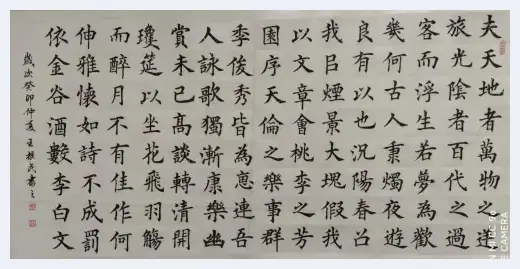 夫天地者萬物之逆
旅光陰者百代之過
客而浮生若夢為歡
幾何古人秉燭夜遊
良有以也況陽春召
我㠯煙景大塊假我
以文章會桃李之芳
園序天倫之樂事群
季俊秀皆為惠連吾
人詠歌獨漸康樂幽
賞未已高談轉清開
瓊筵以坐花飛羽觴
而醉月不有佳作何
伸雅懷如詩不成罰
依金谷酒數李白文
歲次癸卯仲夏王書之
CAMERA